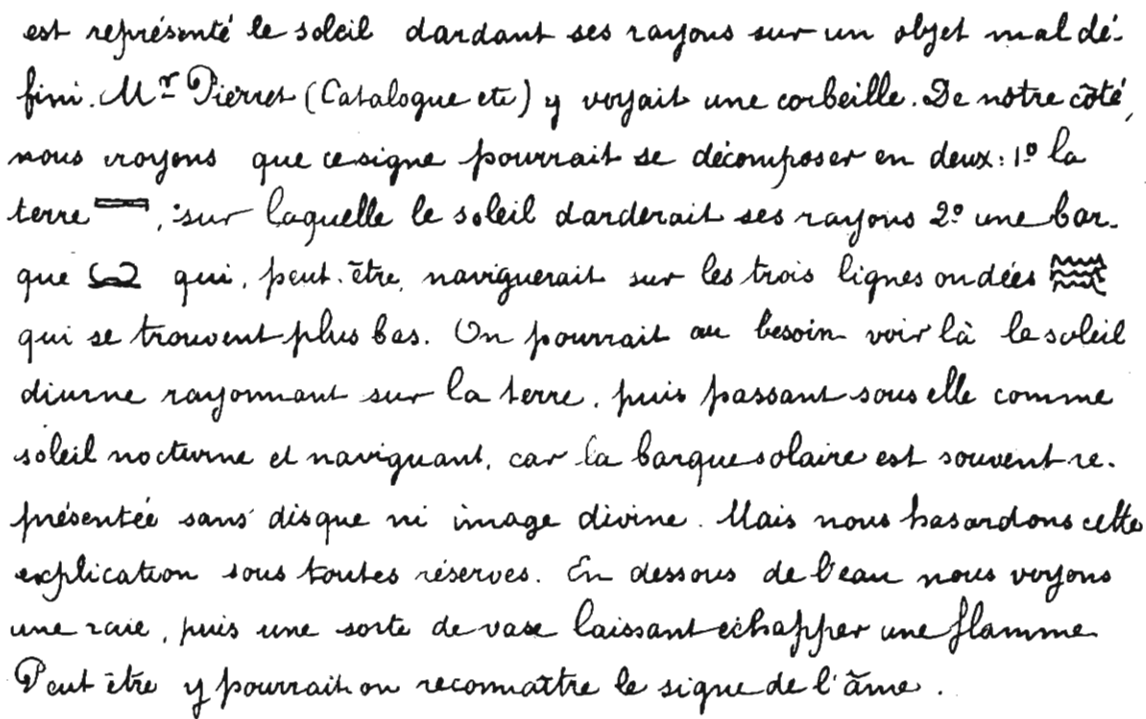 est représenté le soleil dardant ses rayons sur un objet mal dé-
fini. Mr Pierret (Catalogue etc) y voyait une corbeille. De notre côté,
nous croyons que ce signe pourrait se décomposer en deux: 1º la
terre, sur laquelle le soleil darderait ses rayons 2º une bar-
que qui, peut-être, naviguerait sur les trois lignes ondées
qui se trouvent plus bas. On pourrait au besoin voir là le soleil
diurne rayonnant sur la terre, puis passant sous elle comme
soleil nocturne et naviguant, car la barque solaire est souvent re-
présentée sans disque ni image divine. Mais nous hasardons cette
explication sous toutes réserves. En dessous de l'eau nous voyons
une raie, puis une sorte de vase laissant échapper une flamme
Peut être y pourrait on reconnaître le signe de l'âme.